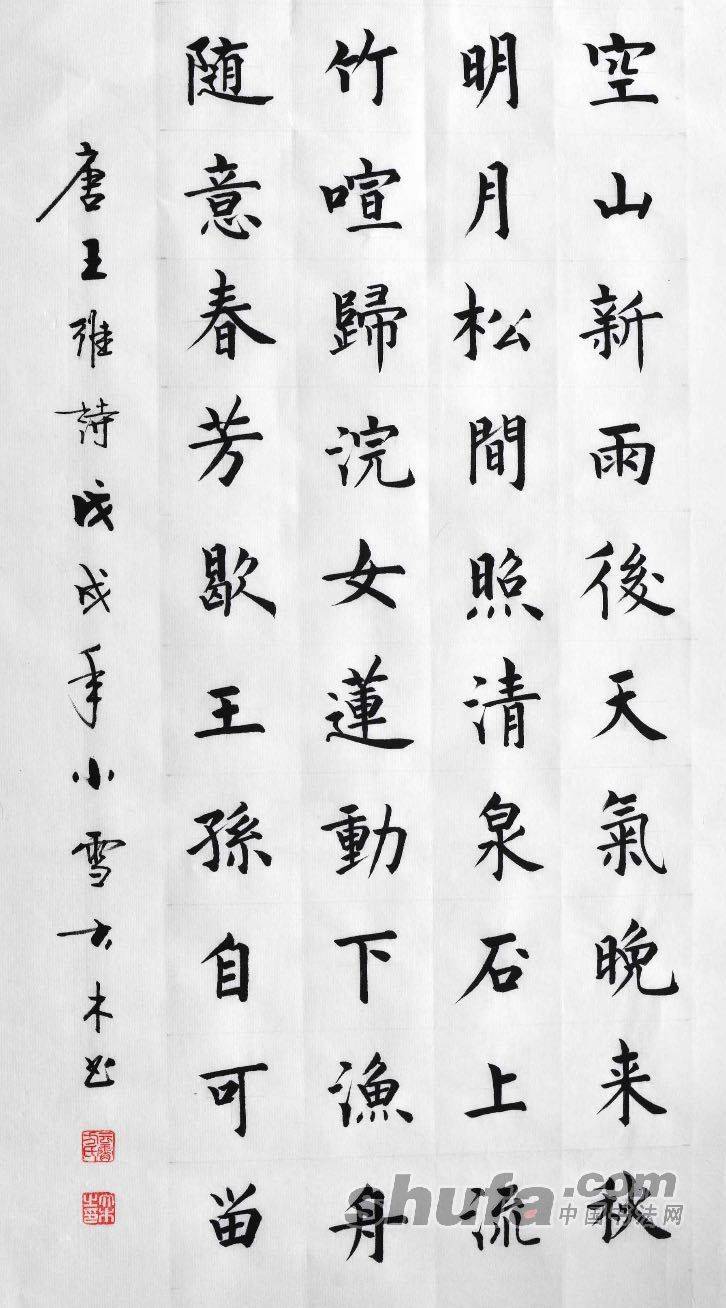 空山新雨後天氣晚来秋
明月松間照清泉石上流
竹喧歸浣女蓮動下漁舟
随意春芳歇王孫自可留
唐王維詩戊戌年小雪方木书
shufa.com
中国书法网